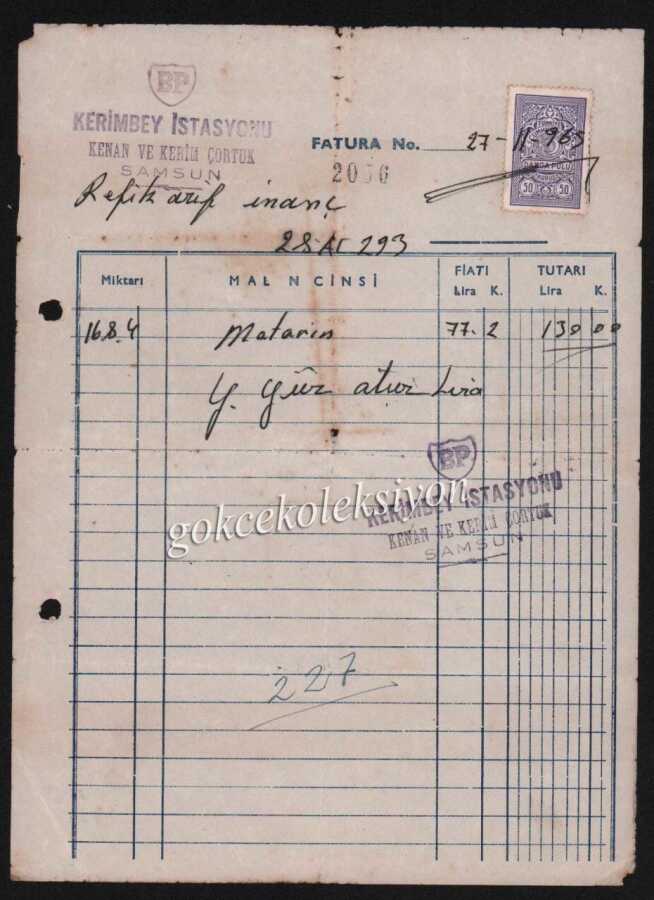 BP
KERİMBEY İSTASYONU
KENAN VE KERİM ÇORTUK
SAMSUN
FATURA No.
2056
27-11-965
DAMGA PULU
50 50
Refik arif inanç
28 Aİ 293
Miktarı MAL N CİNSİ FİATI TUTARI
Lira K. Lira K.
168.4 Motorin 77.2 130 00
Y. Yüz otuz Lira
BP
KERİMBEY İSTASYONU
KENAN VE KERİM ÇORTUK
SAMSUN
gokcekoleksiyon
227